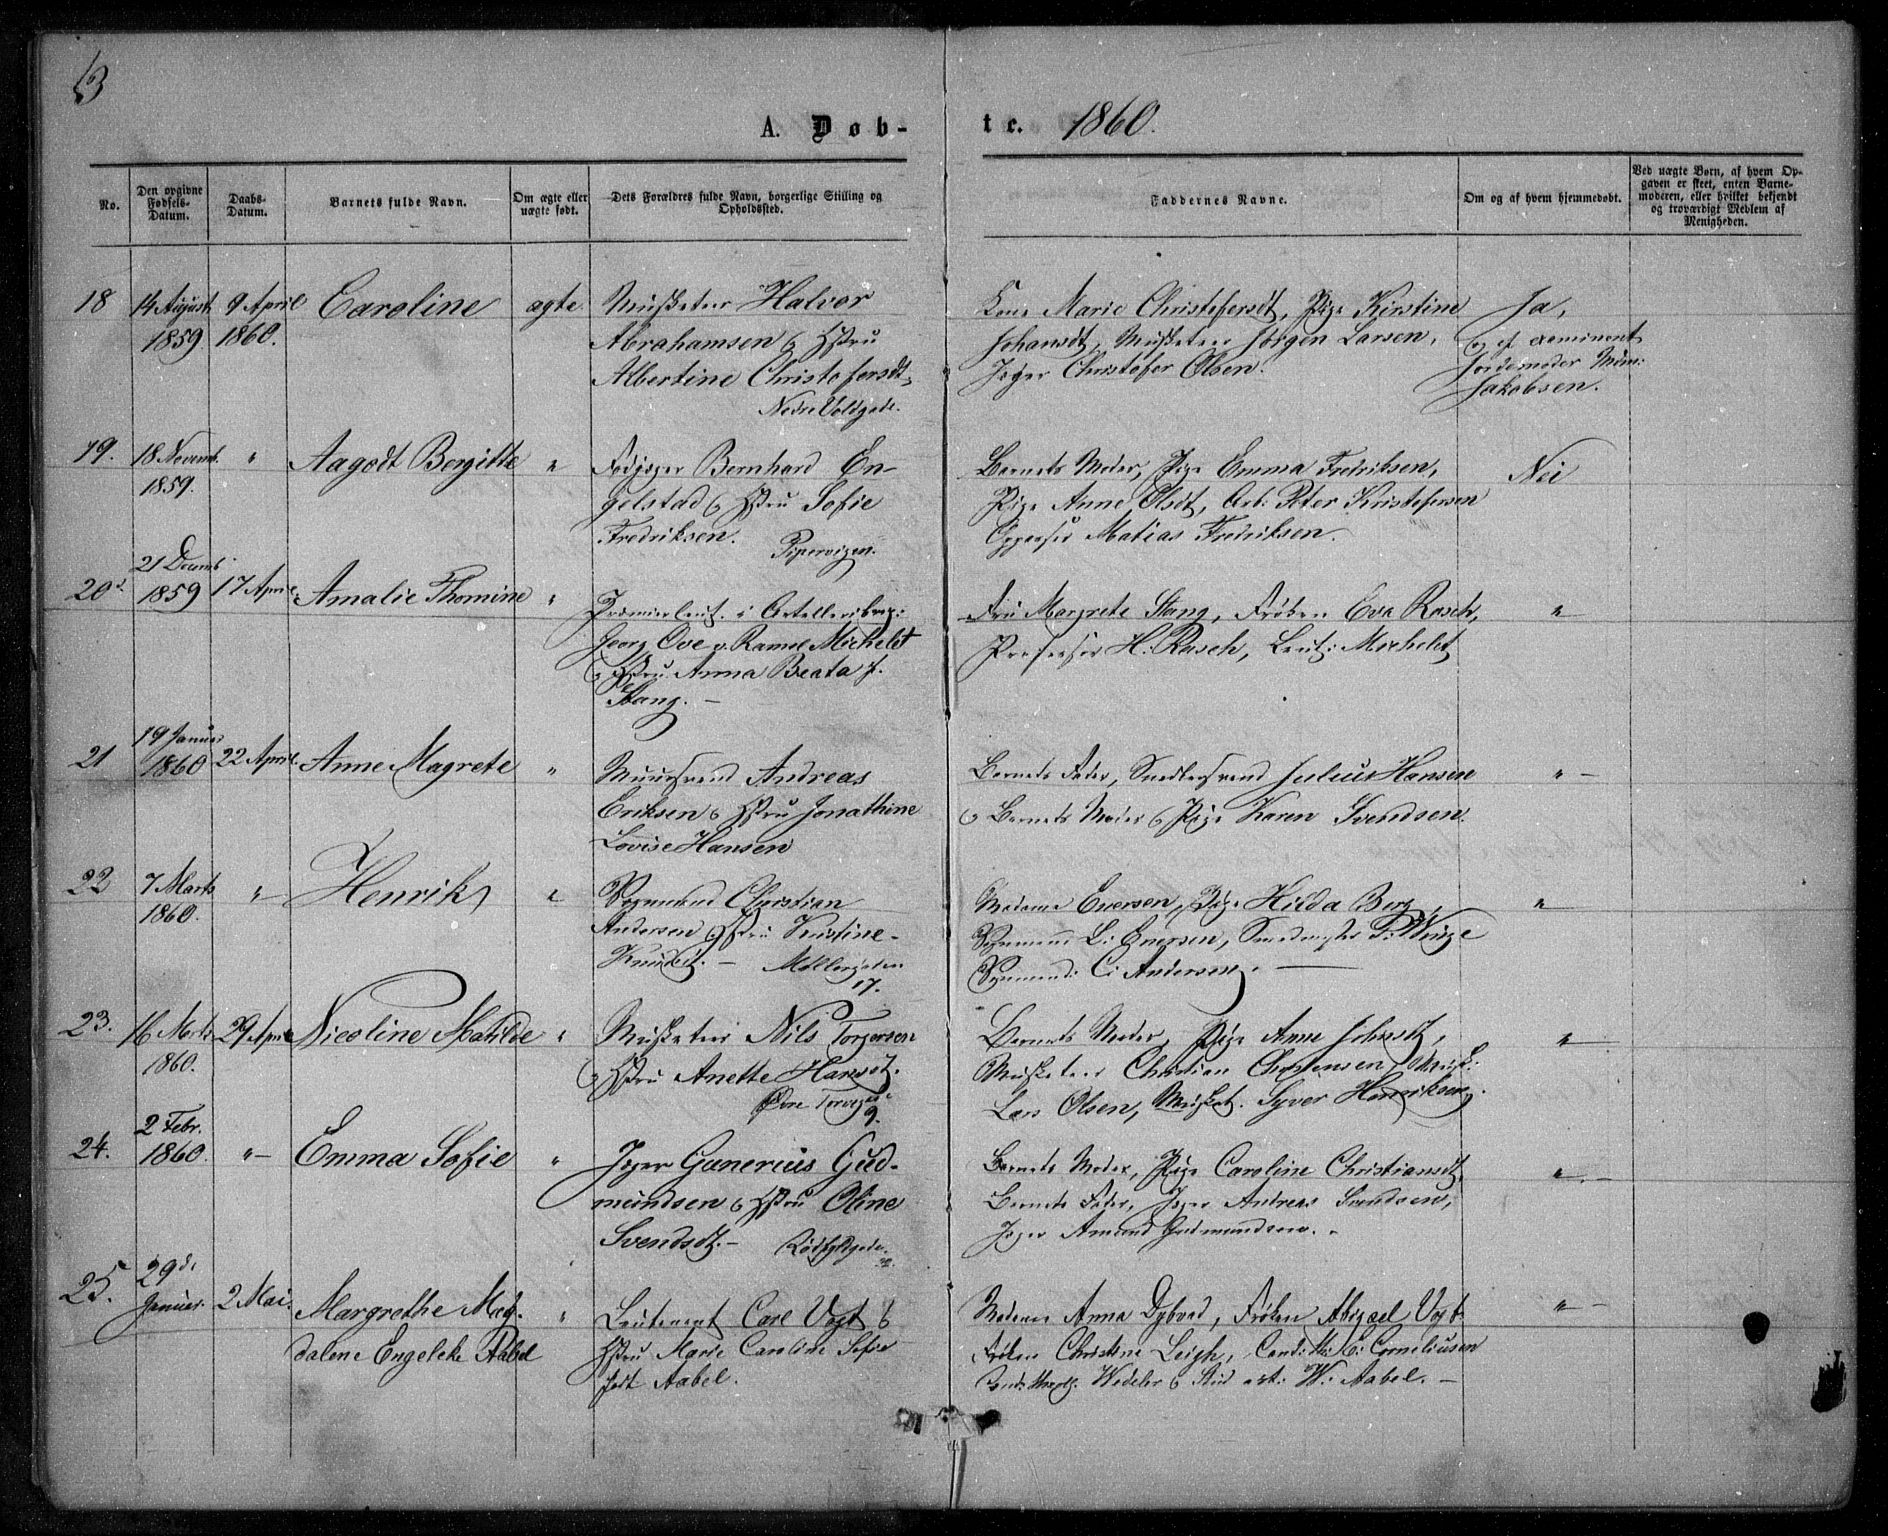 13
A. Døb-
te. 1860.
No.
Den opgivne Fødsels-Datum.
Daabs-Datum.
Barnets fulde Navn.
Om ægte eller uægte født.
Dets Forældres fulde Navn, borgerlige Stilling og Opholdssted.
Faddernes Navne.
Om og af hvem hjemmedøbt.
Ved uægte Børn, af hvem Op-
gaven er skeet, enten Barne-
moderen, eller hvilket bekjendt
og troværdigt Medlem af
Menigheden.
18 14 August 1859. 9 April 1860. Caroline ægte.
Musketeer Halvor
Abrahamsen & Hstru
Albertine Christofersdt.
Nedre Voldgade.
Kone Marie Christofersdt, Pige Kirstine
Johansdt, Musketeer Jørgen Larsen,
Jæger Christofer Olsen.
Ja,
af examineret
Jordemoder
Jakobsen.
19. 18 Novemb. 1859. " Aagodt Bergitte "
Fodjæger Bernhard En-
gelstad & Hstru Sofie
Fredriksen.
Pipervigen.
Barnets Moder, Pige Emma Fredriksen,
Pige Anne Olsdt, Arb: Peter Kristofersen
Matias Fredriksen.
Nei
20 21 Decemb 1859 17 April Amalie Thomine "
Premierleut. i Artelleribrig:
Georg Ove v. Ramel Michelet
& Hstru Anna Beata f.
Stang. —
Fru Margrete Stang, Frøken Eva Rasch,
Professor H: Rasch, Leut: Michelet
"
21 19 Januar 1860 22 April. Anne Magrete "
Muursvend Andreas
Eriksen & Hstru Jonathine
Lovise Hansen
Barnets Fader, Smedesvend Julius Hansen
& Barnets Moder & Pige Karen Svendsen.
" —
22 7 Marts 1860. " Henrik "
Vognmand Christian
Andersen & Hstru Kristine
Knudsdt. — Møllergaden
17.
Madame Evensen, Pige Hilda Berg,
Vognmand L: Evensen, Smedmester P: Winge
Vognmand: C: Andersen. —
"
23. 16 Marts 1860. 29 April Nicoline Matilde "
Musketeer Nils Torgersen
& Hstru Anette Hansdt.
Øvre Torvegade
9.
Barnets Moder, Pige Anne Johnsdt,
Musketeer Christian Christensen, Musk:
Lars Olsen, Musket. Syver Henriksen.
" —
24. 2 Febr. 1860. " — Emma Sofie "
Jæger Gunerius Gud-
mundsen & Hstru Oline
Svendsdt. — Rødfyldgade
Barnets Moder, Pige Caroline Christiansdt,
Barnets Fader, Jæger Andreas Svendsen,
Jæger Amund Gudmundsen.
" —
25. 29de Januar. 2 Mai. Margrethe Mag-
dalene Engelcke Aabel "
Leutenant Carl Vogt &
Hstru Marie Caroline Sofie
født Aabel.
Madame Anna Dybvad, Frøken Abigael Vogt
Frøken Christine Leigh, Cand: Corniliusen
Wedeler & Stud art: W: Aabel. —
" —